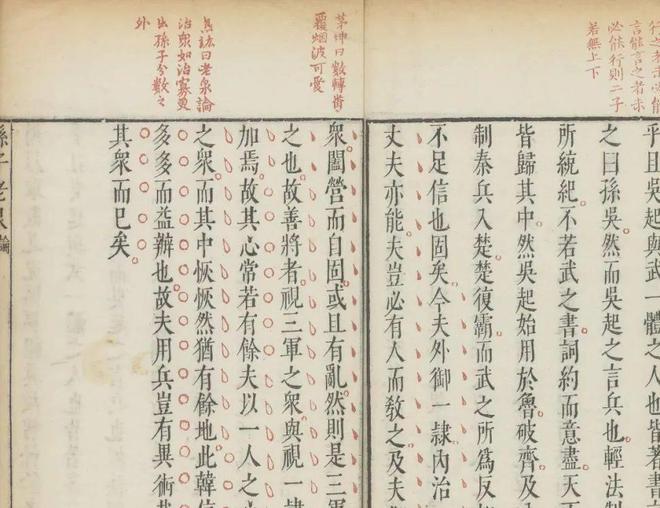 行之者未必能
言能言之者未
必能行則二子
若無上下
乎且吳起與武一體之人也皆著書
之曰孫吳然而吳起之言兵也輕法制
所統紀不若武之書詞約而意盡天
皆歸其中然吳起始用於魯破齊及
制秦兵入楚楚復霸而武之所爲反
不足信也固矣今夫外御一隸內治
丈夫亦能夫豈必有人而教之及夫
茅坤曰數轉嘗
覆烟波可愛
衆闔營而自固或且有亂然則是三軍
之也故善將者視三軍之衆與視一隸
加焉故其心常若有餘夫以一人之
之衆而其中恢恢然猶有餘地此韓信
多多而益辦也故夫用兵豈有異術
其衆而已矣
曰老泉論
治衆如治寡更
出孫子分數之
外
孫子 老泉論